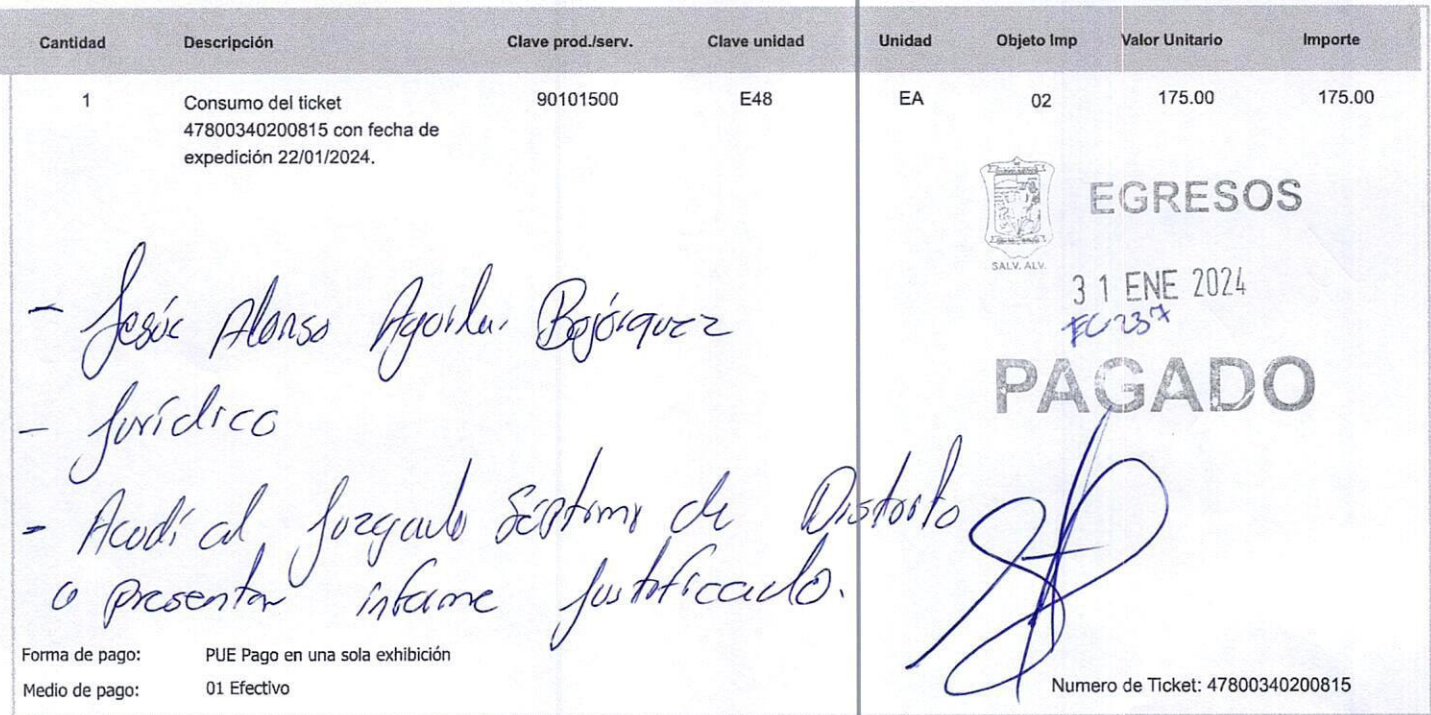 Cantidad Descripción Clave prod./serv. Clave unidad Unidad Objeto Imp Valor Unitario Importe
1 Consumo del ticket 90101500 E48 EA 02 175.00 175.00
47800340200815 con fecha de
expedición 22/01/2024.
EGRESOS
SALV. ALV.
31 ENE 2024
EG 237
PAGADO
- Jesús Alonso Aguilar Bojórquez
- Jurídico
- Acudí al Juzgado Séptimo de Distrito
a presentar informe justificado.
Forma de pago: PUE Pago en una sola exhibición
Medio de pago: 01 Efectivo
Numero de Ticket: 47800340200815